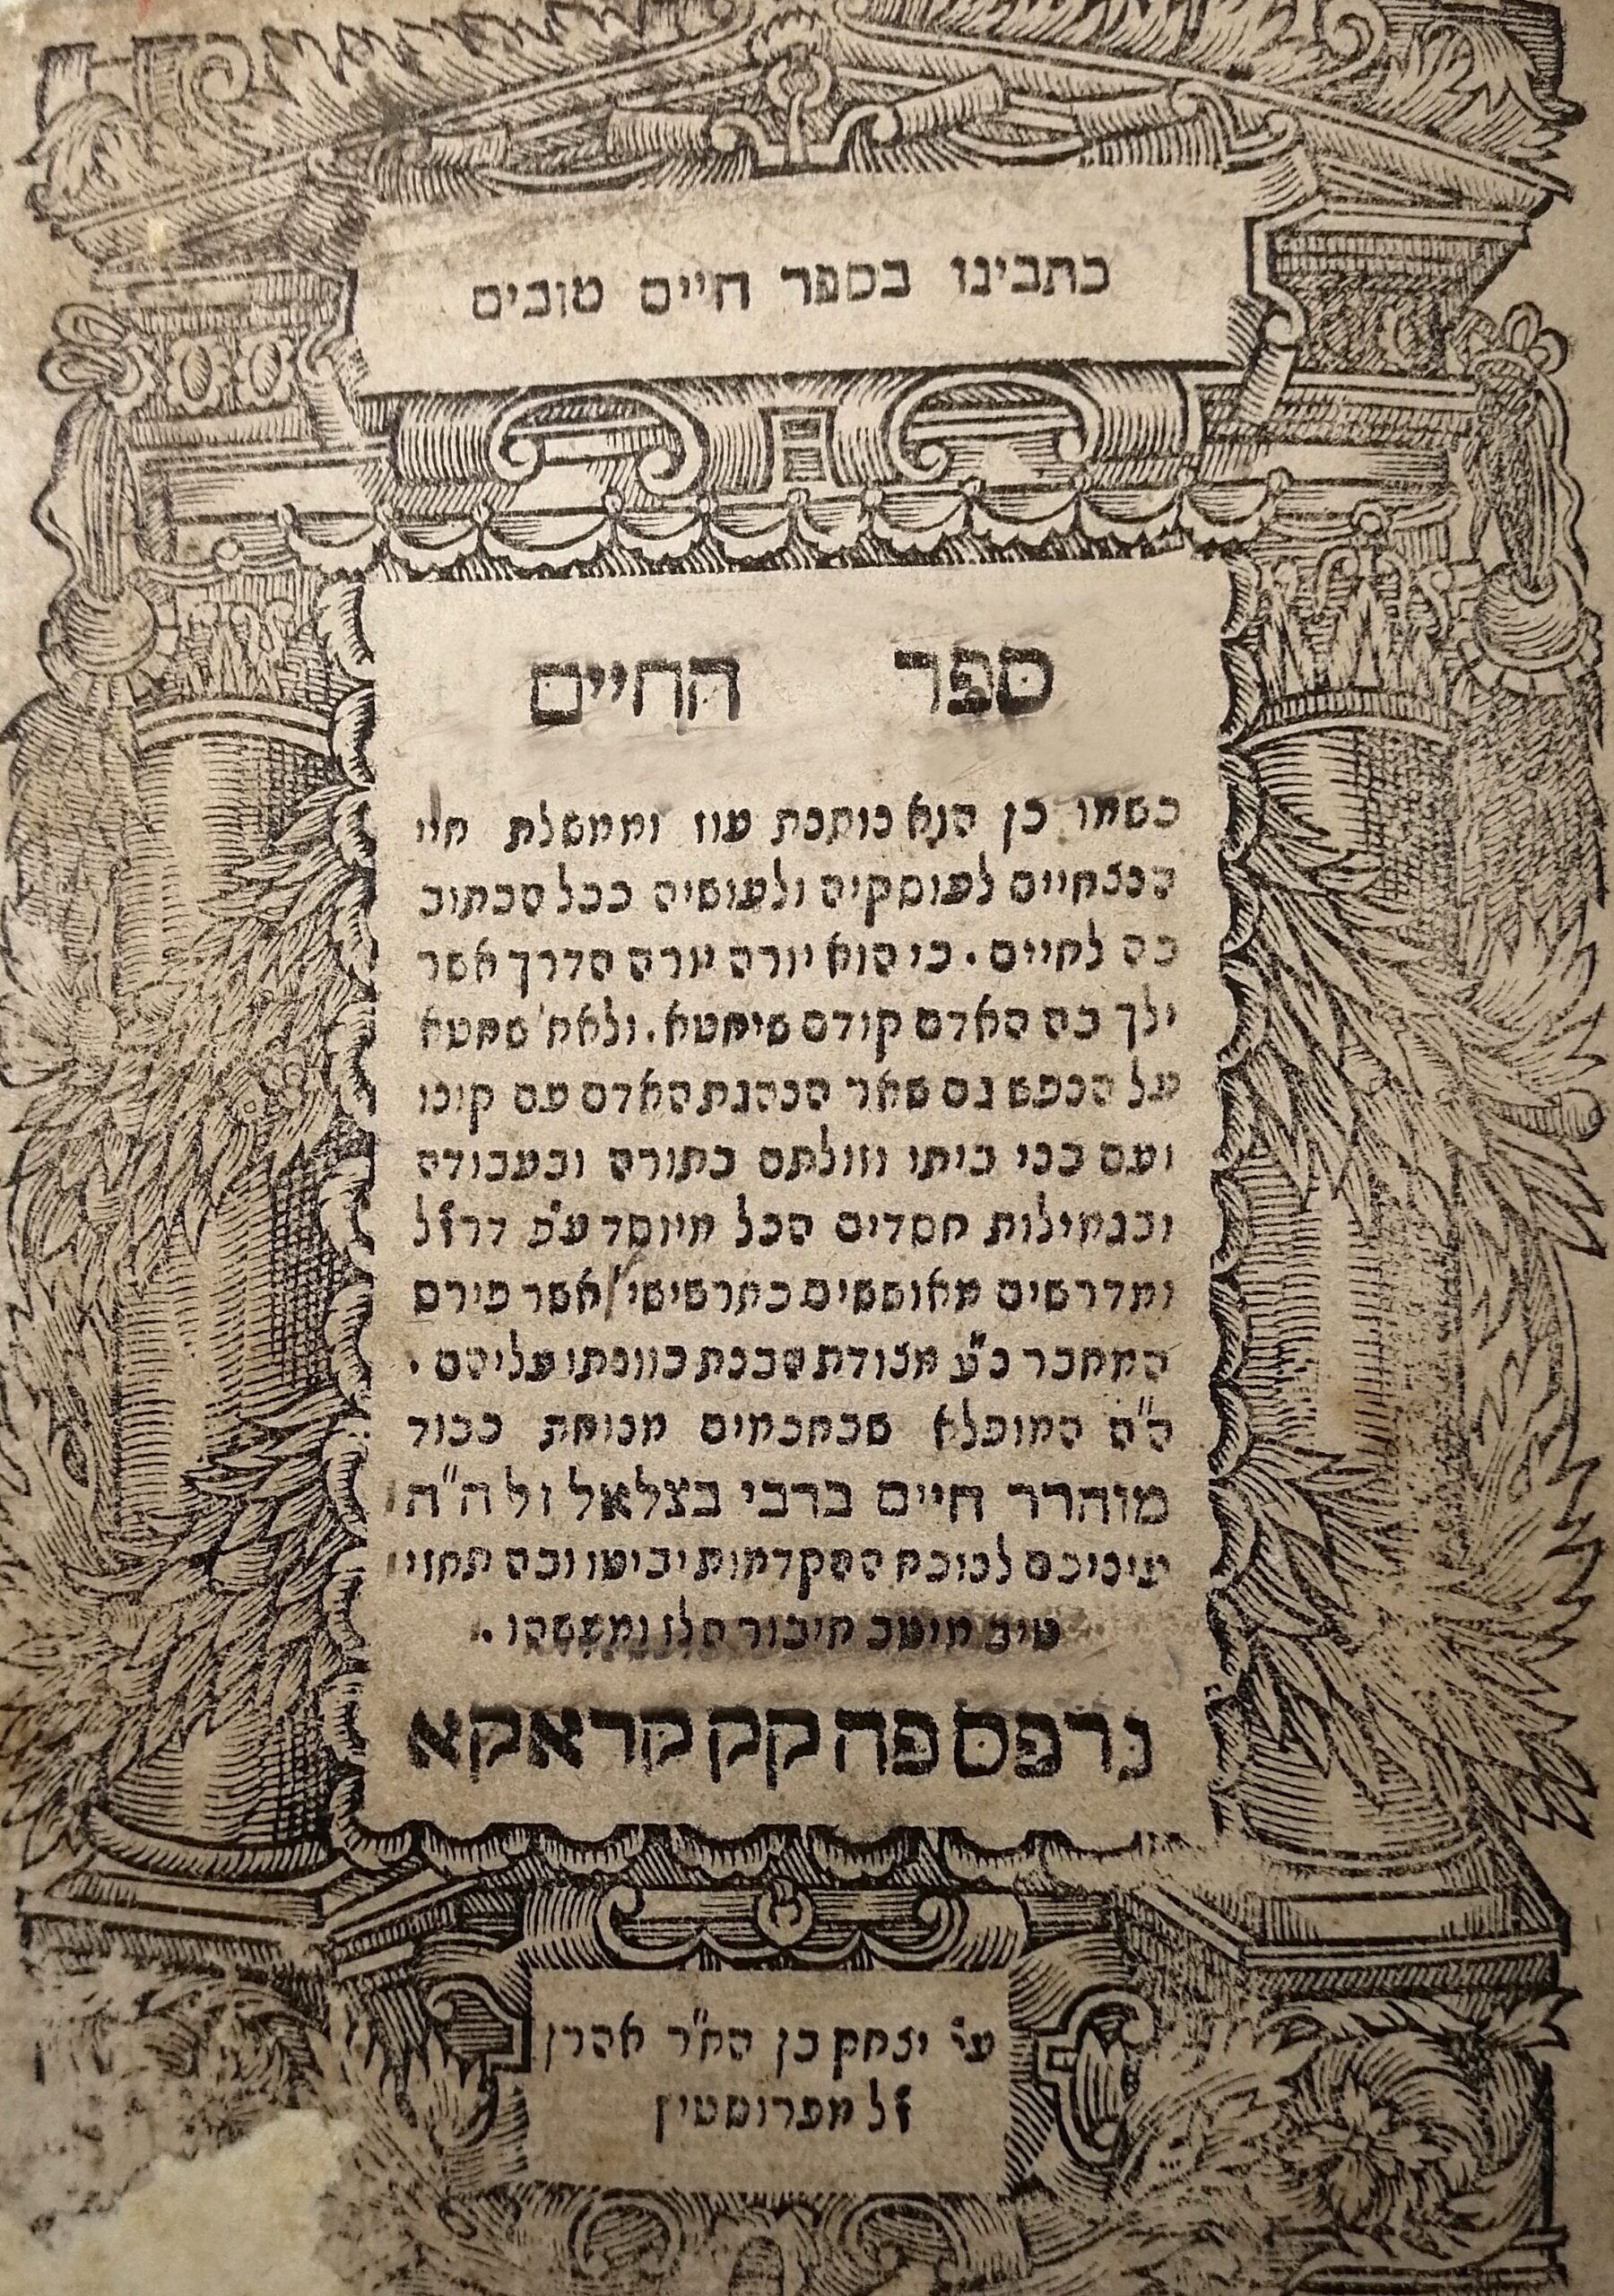 כתבינו בספר חיים טובים
ספר החיים
כשמו כן הוא כותבת עוז וממשלת חיי
הנצחיים לעוסקיה ולעושיה ככל הכתוב
בה לחיים. כי הוא יורה יורה הדרך אשר
ילך בה האדם קודם שיחטא. ולאח' שחטא
על הנפש גם שאר הנהגת האדם עם קונו
ועם בני ביתו וזולתם בתורה ובעבודה
ובגמילות חסדים הכל מיוסד ע"פ דרז"ל
ומדרשים מאוששים כתרשישי אשר פירם
המחבר נ"ע מצודת הבנת כוונתו עליהם.
ה"ה המופלא שבחכמים מנוחת כבוד
מוהרר חיים ברבי בצלאל ול ה"ה
עיניכם לנוכח ההקדמות יביטו ובה תחזו
טיב מיטב חיבור הלז ומעשהו.
נדפס פה קק קראקא
ע"י יצחק בן הח"ר אהרן
ז"ל מפרוסטיץ